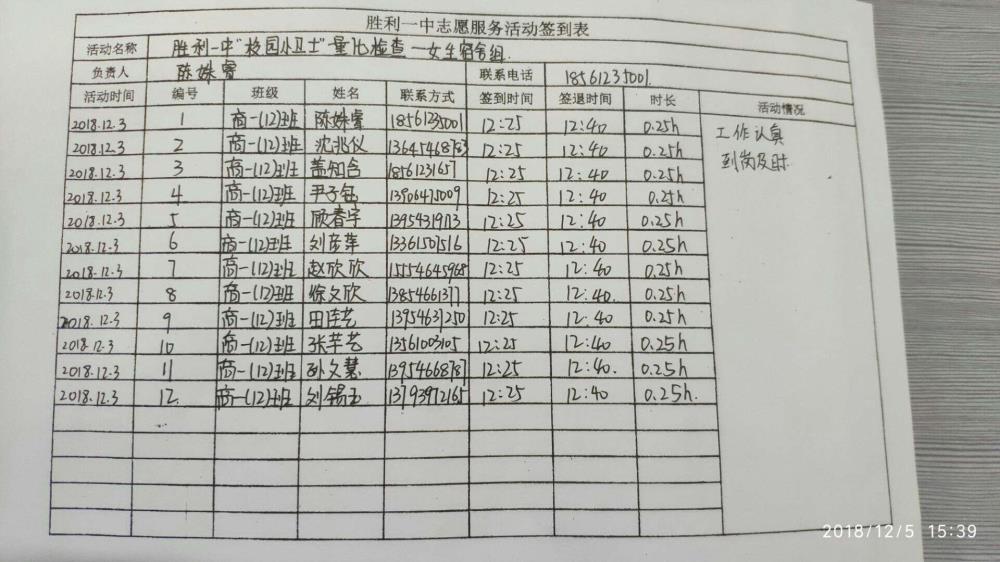 胜利一中志愿服务活动签到表
活动名称 胜利一中"校园小卫士"量化检查—女生宿舍组.
负责人 陈姝睿 联系电话 18561235001.
活动时间 编号 班级 姓名 联系方式 签到时间 签退时间 时长 活动情况
2018.12.3 1 高一(12)班 陈姝睿 18561235001 12:25 12:40 0.25h
工作认真
2018.12.3 2 高一(12)班 沈兆仪 13645468783 12:25 12:40 0.25h
到岗及时.
2018.12.3 3 高一(12)班 盖知含 18561231657 12:25 12:40 0.25h
2018.12.3 4 高一(12)班 尹子钰 13906475009 12:25 12:40 0.25h
2018.12.3 5 高一(12)班 顾春宇 13954319113 12:25 12:40 0.25h
2018.12.3 6 高一(12)班 刘彦萍 13361507516 12:25 12:40 0.25h
2018.12.3 7 高一(12)班 赵欣欣 15554645968 12:25 12:40 0.25h
2018.12.3 8 高一(12)班 徐文欣 13854661377 12:25 12:40. 0.25h
2018.12.3 9 高一(12)班 田佳艺 13954631250 12:25 12:40 0.25h
2018.12.3 10 高一(12)班 张芊艺 13561003105 12:25 12:40 0.25h
2018.12.3 11 高一(12)班 孙文慧 13954668787 12:25 12:40. 0.25h
2018.12.3 12. 高一(12)班 刘锡玉 13793972165 12:25 12:40 0.25h.
2018/12/5 15:39